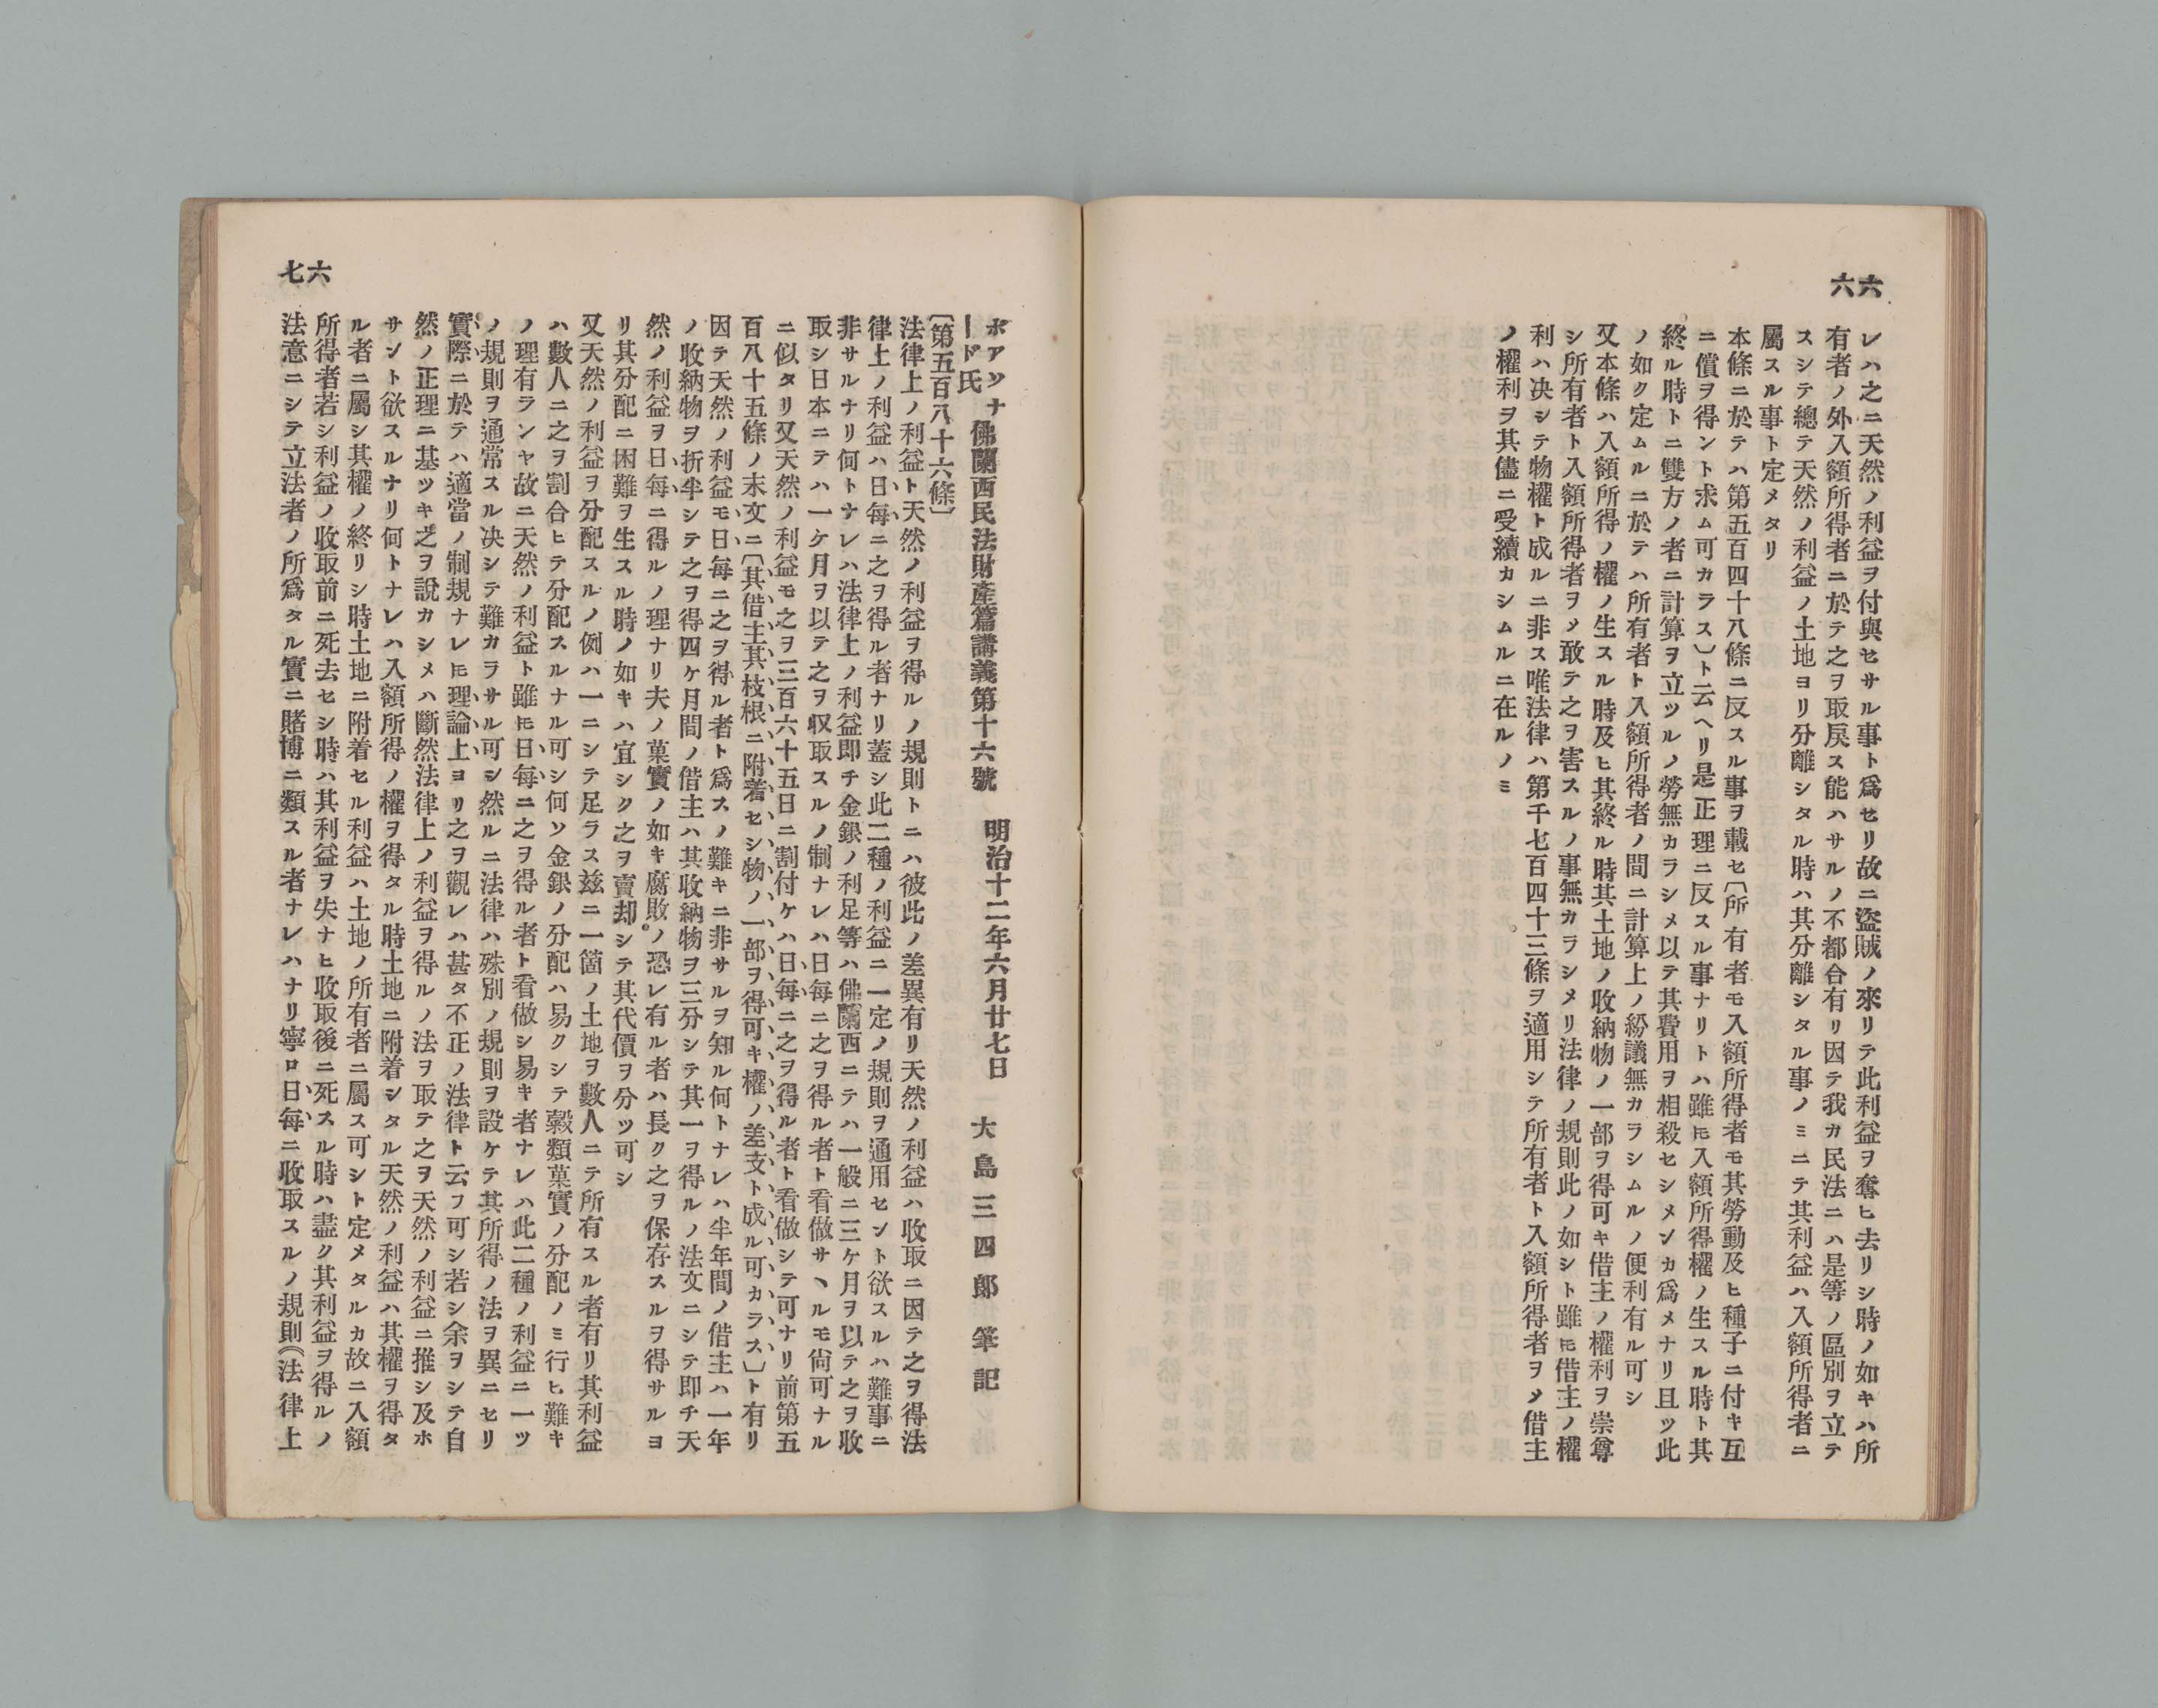 六六
レハ之ニ天然ノ利益ヲ付與セサル事ト爲セリ故ニ盜賊ノ來リテ此利益ヲ奪ヒ去リシ時ノ如キハ所
有者ノ外入額所得者ニ於テ之ヲ取戾ス能ハサルノ不都合有リ因テ我カ民法ニハ是等ノ區別ヲ立テ
スシテ總テ天然ノ利益ノ土地ヨリ分離シタル時ハ其分離シタル事ノミニテ其利益ハ入額所得者ニ
屬スル事ト定メタリ
本條ニ於テハ第五百四十八條ニ反スル事ヲ載セ〔所有者モ入額所得者モ其勞動及ヒ種子ニ付キ互
ニ償ヲ得ント求ム可カラス〕ト云ヘリ是正理ニ反スル事ナリトハ雖モ入額所得權ノ生スル時ト其
終ル時トニ雙方ノ者ニ計算ヲ立ツルノ勞無カラシメ以テ其費用ヲ相殺セシメンカ爲メナリ且ツ此
ノ如ク定ムルニ於テハ所有者ト入額所得者ノ間ニ計算上ノ紛議無カラシムルノ便利有ル可シ
又本條ハ入額所得ノ權ノ生スル時及ヒ其終ル時其土地ノ收納物ノ一部ヲ得可キ借主ノ權利ヲ崇尊
シ所有者ト入額所得者ヲメ敢テ之ヲ害スルノ事無カラシメリ法律ノ規則此ノ如シト雖モ借主ノ權
利ハ决シテ物權ト成ルニ非ス唯法律ハ第千七百四十三條ヲ適用シテ所有者ト入額所得者ヲメ借主
ノ權利ヲ其儘ニ受續カシムルニ在ルノミ
六七
ボアソナード氏 佛蘭西民法財產篇講義第十六號 明治十二年六月廿七日 大島三四郎筆記
〔第五百八十六條〕
法律上ノ利益ト天然ノ利益ヲ得ルノ規則トニハ彼此ノ差異有リ天然ノ利益ハ收取ニ因テ之ヲ得法
律上ノ利益ハ日每ニ之ヲ得ル者ナリ蓋シ此二種ノ利益ニ一定ノ規則ヲ通用セント欲スルハ難事ニ
非サルナリ何トナレハ法律上ノ利益即チ金銀ノ利足等ハ佛蘭西ニテハ一般ニ三ケ月ヲ以テ之ヲ收
取シ日本ニテハ一ケ月ヲ以テ之ヲ収取スルノ制ナレハ日每ニ之ヲ得ル者ト看做サヽルモ尙可ナル
ニ似タリ又天然ノ利益モ之ヲ三百六十五日ニ割付ケハ日每ニ之ヲ得ル者ト看做シテ可ナリ前第五
百八十五條ノ末文ニ〔其借主其枝根ニ附着セシ物ノ一部ヲ得可キ權ノ差支ト成ル可カラス〕ト有リ
因テ天然ノ利益モ日每ニ之ヲ得ル者ト爲スノ難キニ非サルヲ知ル何トナレハ半年間ノ借主ハ一年
ノ收納物ヲ折半シテ之ヲ得四ケ月間ノ借主ハ其收納物ヲ三分シテ其一ヲ得ルノ法文ニシテ即チ天
然ノ利益ヲ日每ニ得ルノ理ナリ夫ノ菓實ノ如キ腐敗ノ恐レ有ル者ハ長ク之ヲ保存スルヲ得サルヨ
リ其分配ニ困難ヲ生スル時ノ如キハ宜シク之ヲ賣却シテ其代價ヲ分ツ可シ
又天然ノ利益ヲ分配スルノ例ハ一ニシテ足ラス玆ニ一箇ノ土地ヲ數人ニテ所有スル者有リ其利益
ハ數人ニ之ヲ割合ヒテ分配スルナル可シ何ソ金銀ノ分配ハ易クシテ糓類菓實ノ分配ノミ行ヒ難キ
ノ理有ランヤ故ニ天然ノ利益ト雖モ日每ニ之ヲ得ル者ト看做シ易キ者ナレハ此二種ノ利益ニ一ツ
ノ規則ヲ通常スル决シテ難カラサル可シ然ルニ法律ハ殊別ノ規則ヲ設ケテ其所得ノ法ヲ異ニセリ
實際ニ於テハ適當ノ制規ナレモ理論上ヨリ之ヲ觀レハ甚タ不正ノ法律ト云フ可シ若シ余ヲシテ自
然ノ正理ニ基ツキ之ヲ說カシメハ斷然法律上ノ利益ヲ得ルノ法ヲ取テ之ヲ天然ノ利益ニ推シ及ホ
サント欲スルナリ何トナレハ入額所得ノ權ヲ得タル時土地ニ附着シタル天然ノ利益ハ其權ヲ得タ
ル者ニ屬シ其權ノ終リシ時土地ニ附着セル利益ハ土地ノ所有者ニ屬ス可シト定メタルカ故ニ入額
所得者若シ利益ノ收取前ニ死去セシ時ハ其利益ヲ失ナヒ收取後ニ死スル時ハ盡ク其利益ヲ得ルノ
法意ニシテ立法者ノ所爲タル實ニ賭博ニ類スル者ナレハナリ寧ロ日每ニ收取スルノ規則（法律上